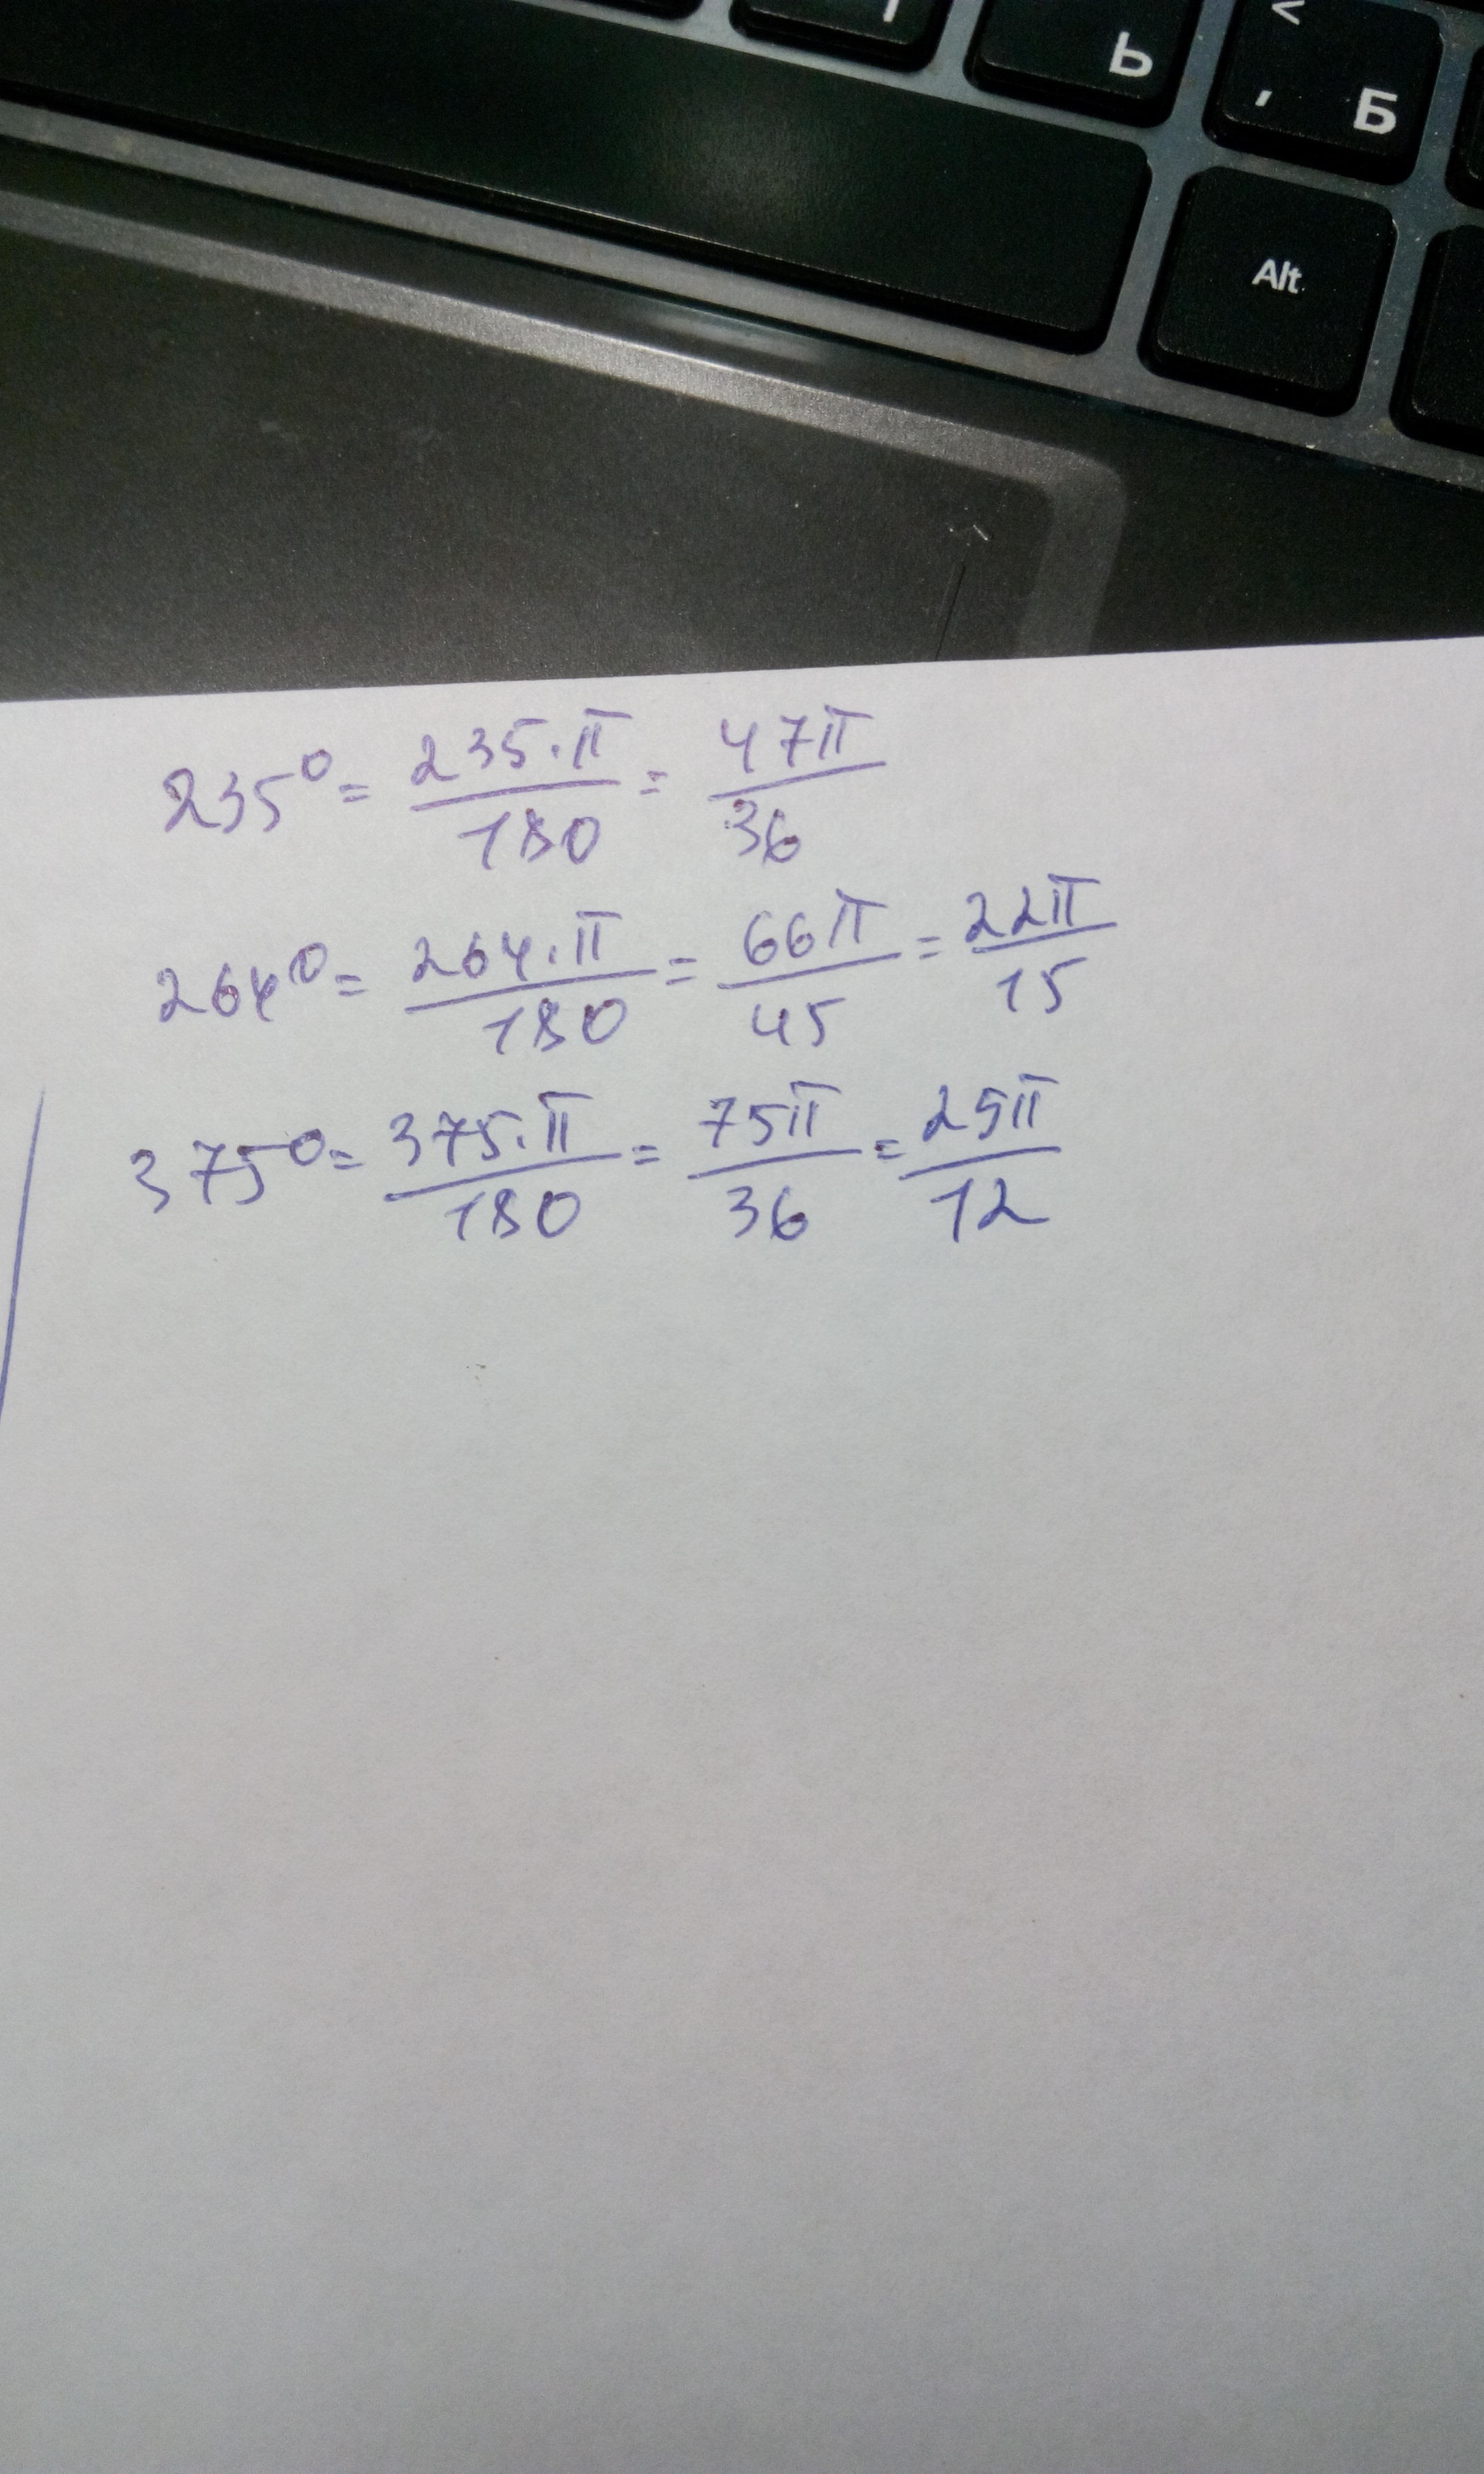 Ь
<
, Б
Alt
235° = 235·π/180 = 47π/36
264° = 264·π/180 = 66π/45 = 22π/15
375° = 375·π/180 = 75π/36 = 25π/12